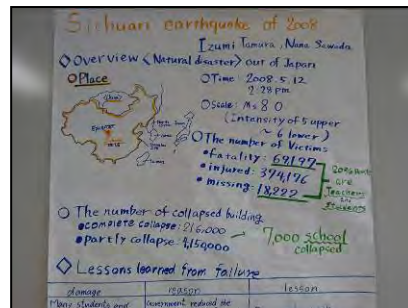 Sichuan earthquake of 2008
Izumi Tamura, Nana Sawada
◇Overview <Natural disaster> out of Japan
○Place
○Time: 2008.5.12
2:28 pm
○Scale: Ms 8.0
(intensity of 5 upper
~ 6 lower)
China
○The number of Victims
•fatality: 69,197
•injured: 374,176
•missing: 18,222
are
Teachers
students
○ The number of collapsed building.
•complete collapse: 216,000
•partly collapse: 4,150,000
7,000 school
collapsed
◇ Lessons learned from failure
damage
reason
lesson
Many students and
Government reduced the